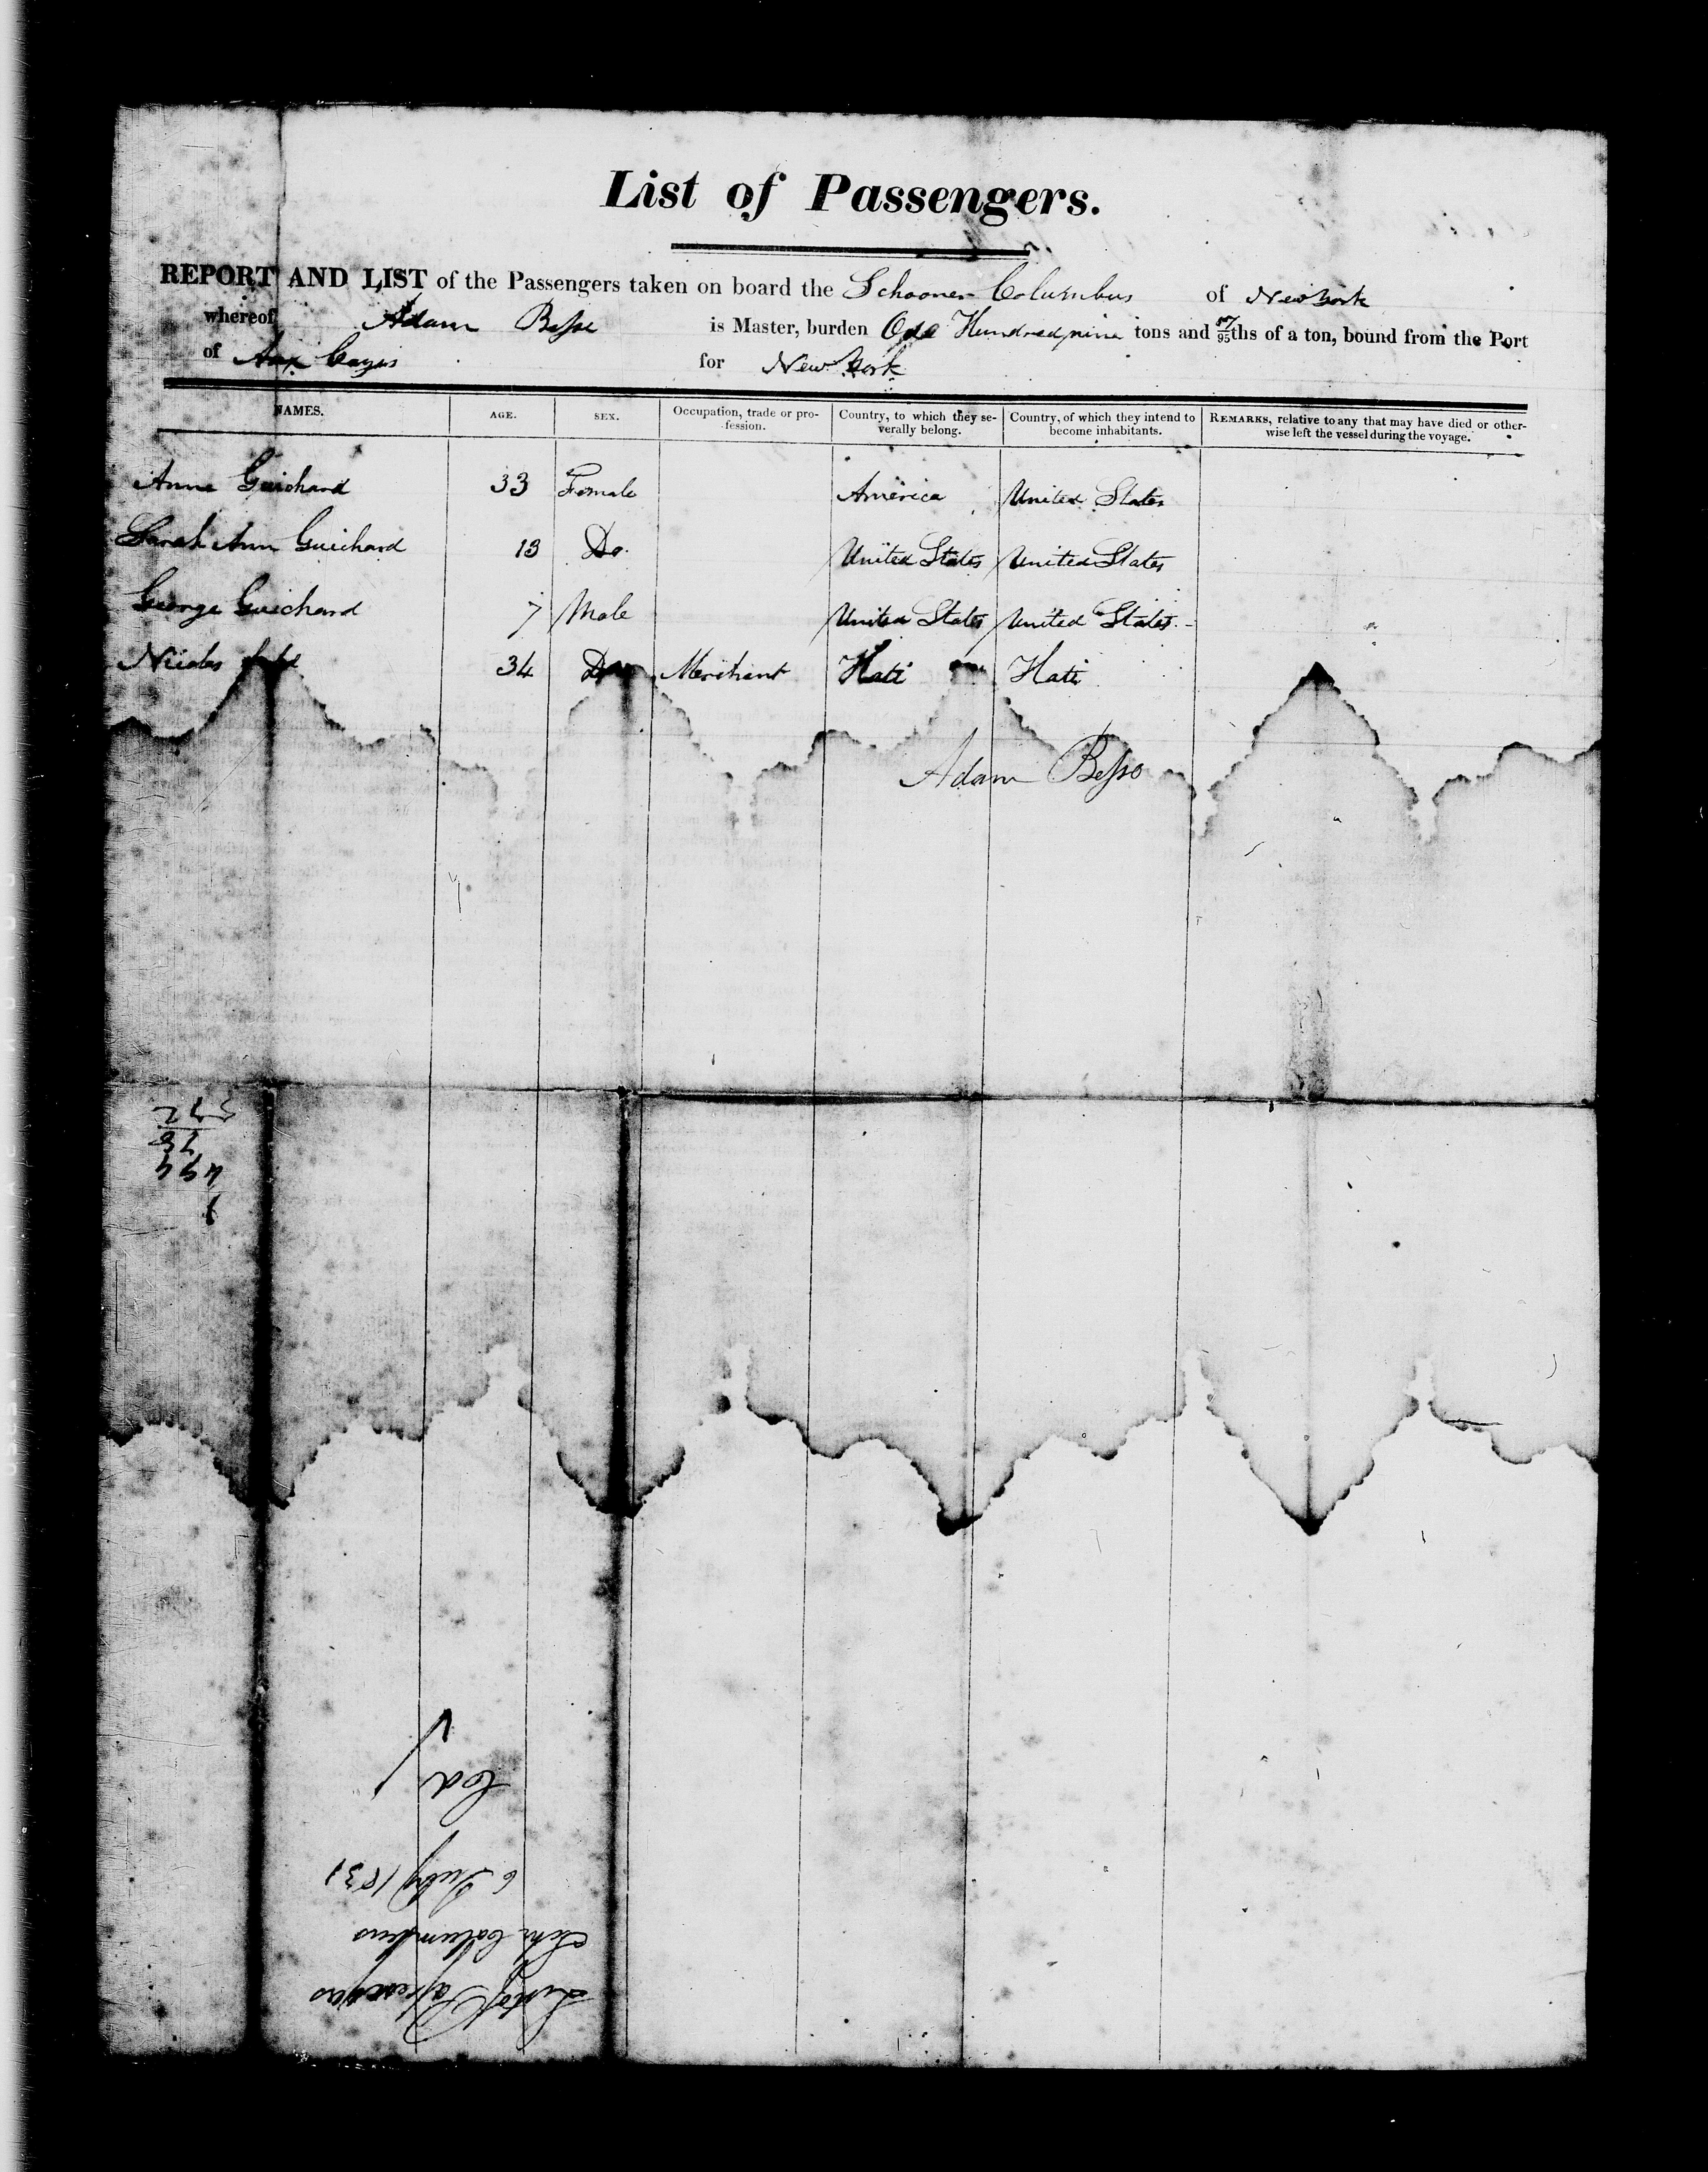 List of Passengers.
REPORT AND LIST of the Passengers taken on board the Schooner Columbus of New York
whereof Adam Besse is Master, burden One Hundred nine tons and 57/95ths of a ton, bound from the Port
of Aux Cayes for New York
NAMES. AGE. SEX. Occupation, trade or profession. Country, to which they severally belong. Country, of which they intend to become inhabitants. REMARKS, relative to any that may have died or otherwise left the vessel during the voyage.
Anna Guichard 33 Female America United States
Sarah Ann Guichard 13 Do. United States United States
George Guichard 7 Male United States United States
Nicolas 34 Do Merchant Hati Hati
Adam Besse
List of Passengers
Schr Columbus
6 July 1831